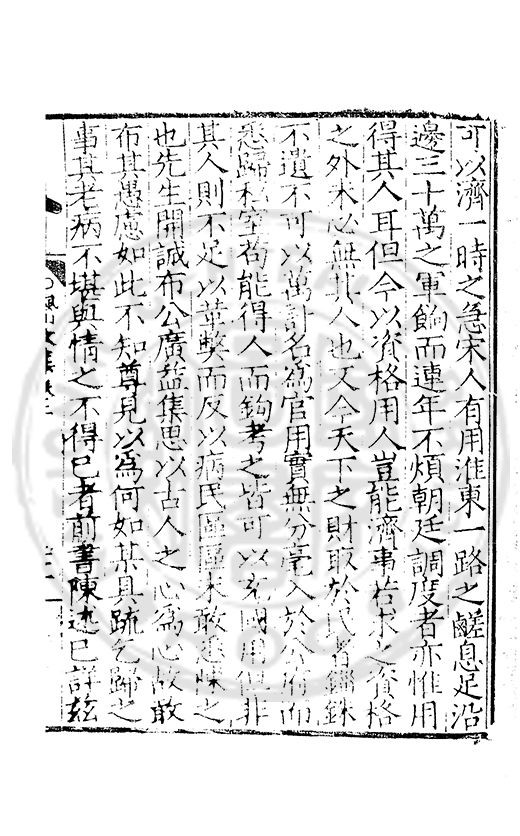 可以濟一時之急宋人有用淮東一路之鹺息足沿
邊三十萬之軍餉而連年不煩朝廷調度者亦惟用
得其人耳但今以資格用人豈能濟事若求之資格
之外未必無其人也又今天下之財取於民者錙銖
不遺不可以萬計名為官用實無分毫入於公府而
悉歸私室苟能得人而鉤考之皆可以充國用但非
其人則不足以革弊而反以病民區區未敢悉陳之
也先生開誠布公廣益集思以古人之心為心故敢
布其愚慮如此不知尊見以為何如某具疏乞歸之
事其老病不堪與情之不得已者前書陳述已詳茲